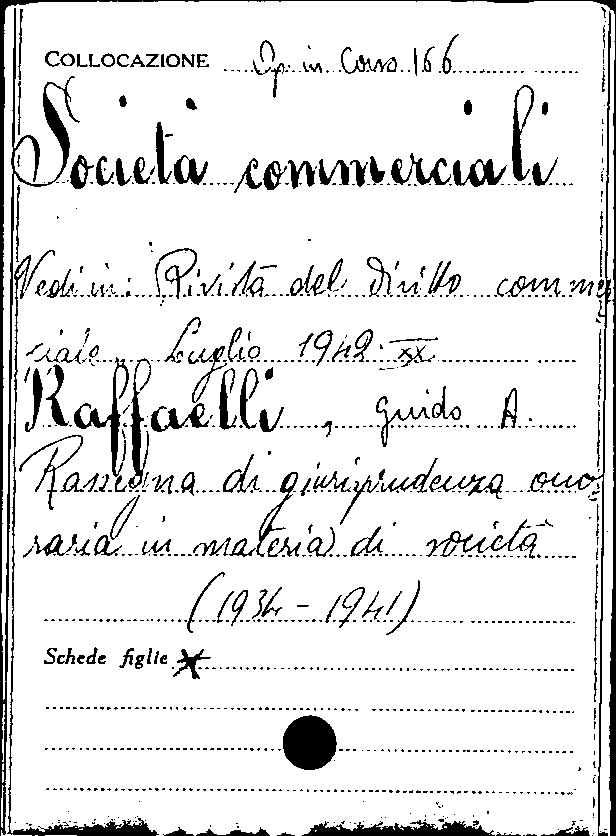 COLLOCAZIONE Op. in Corso 166
Società commerciali
Vedi in: Rivista del diritto commer
ciale, Luglio 1942-XX
Raffaelli, Guido A.
Rassegna di giurisprudenza ono
raria in materia di società
(1934-1941)
Schede figlie X